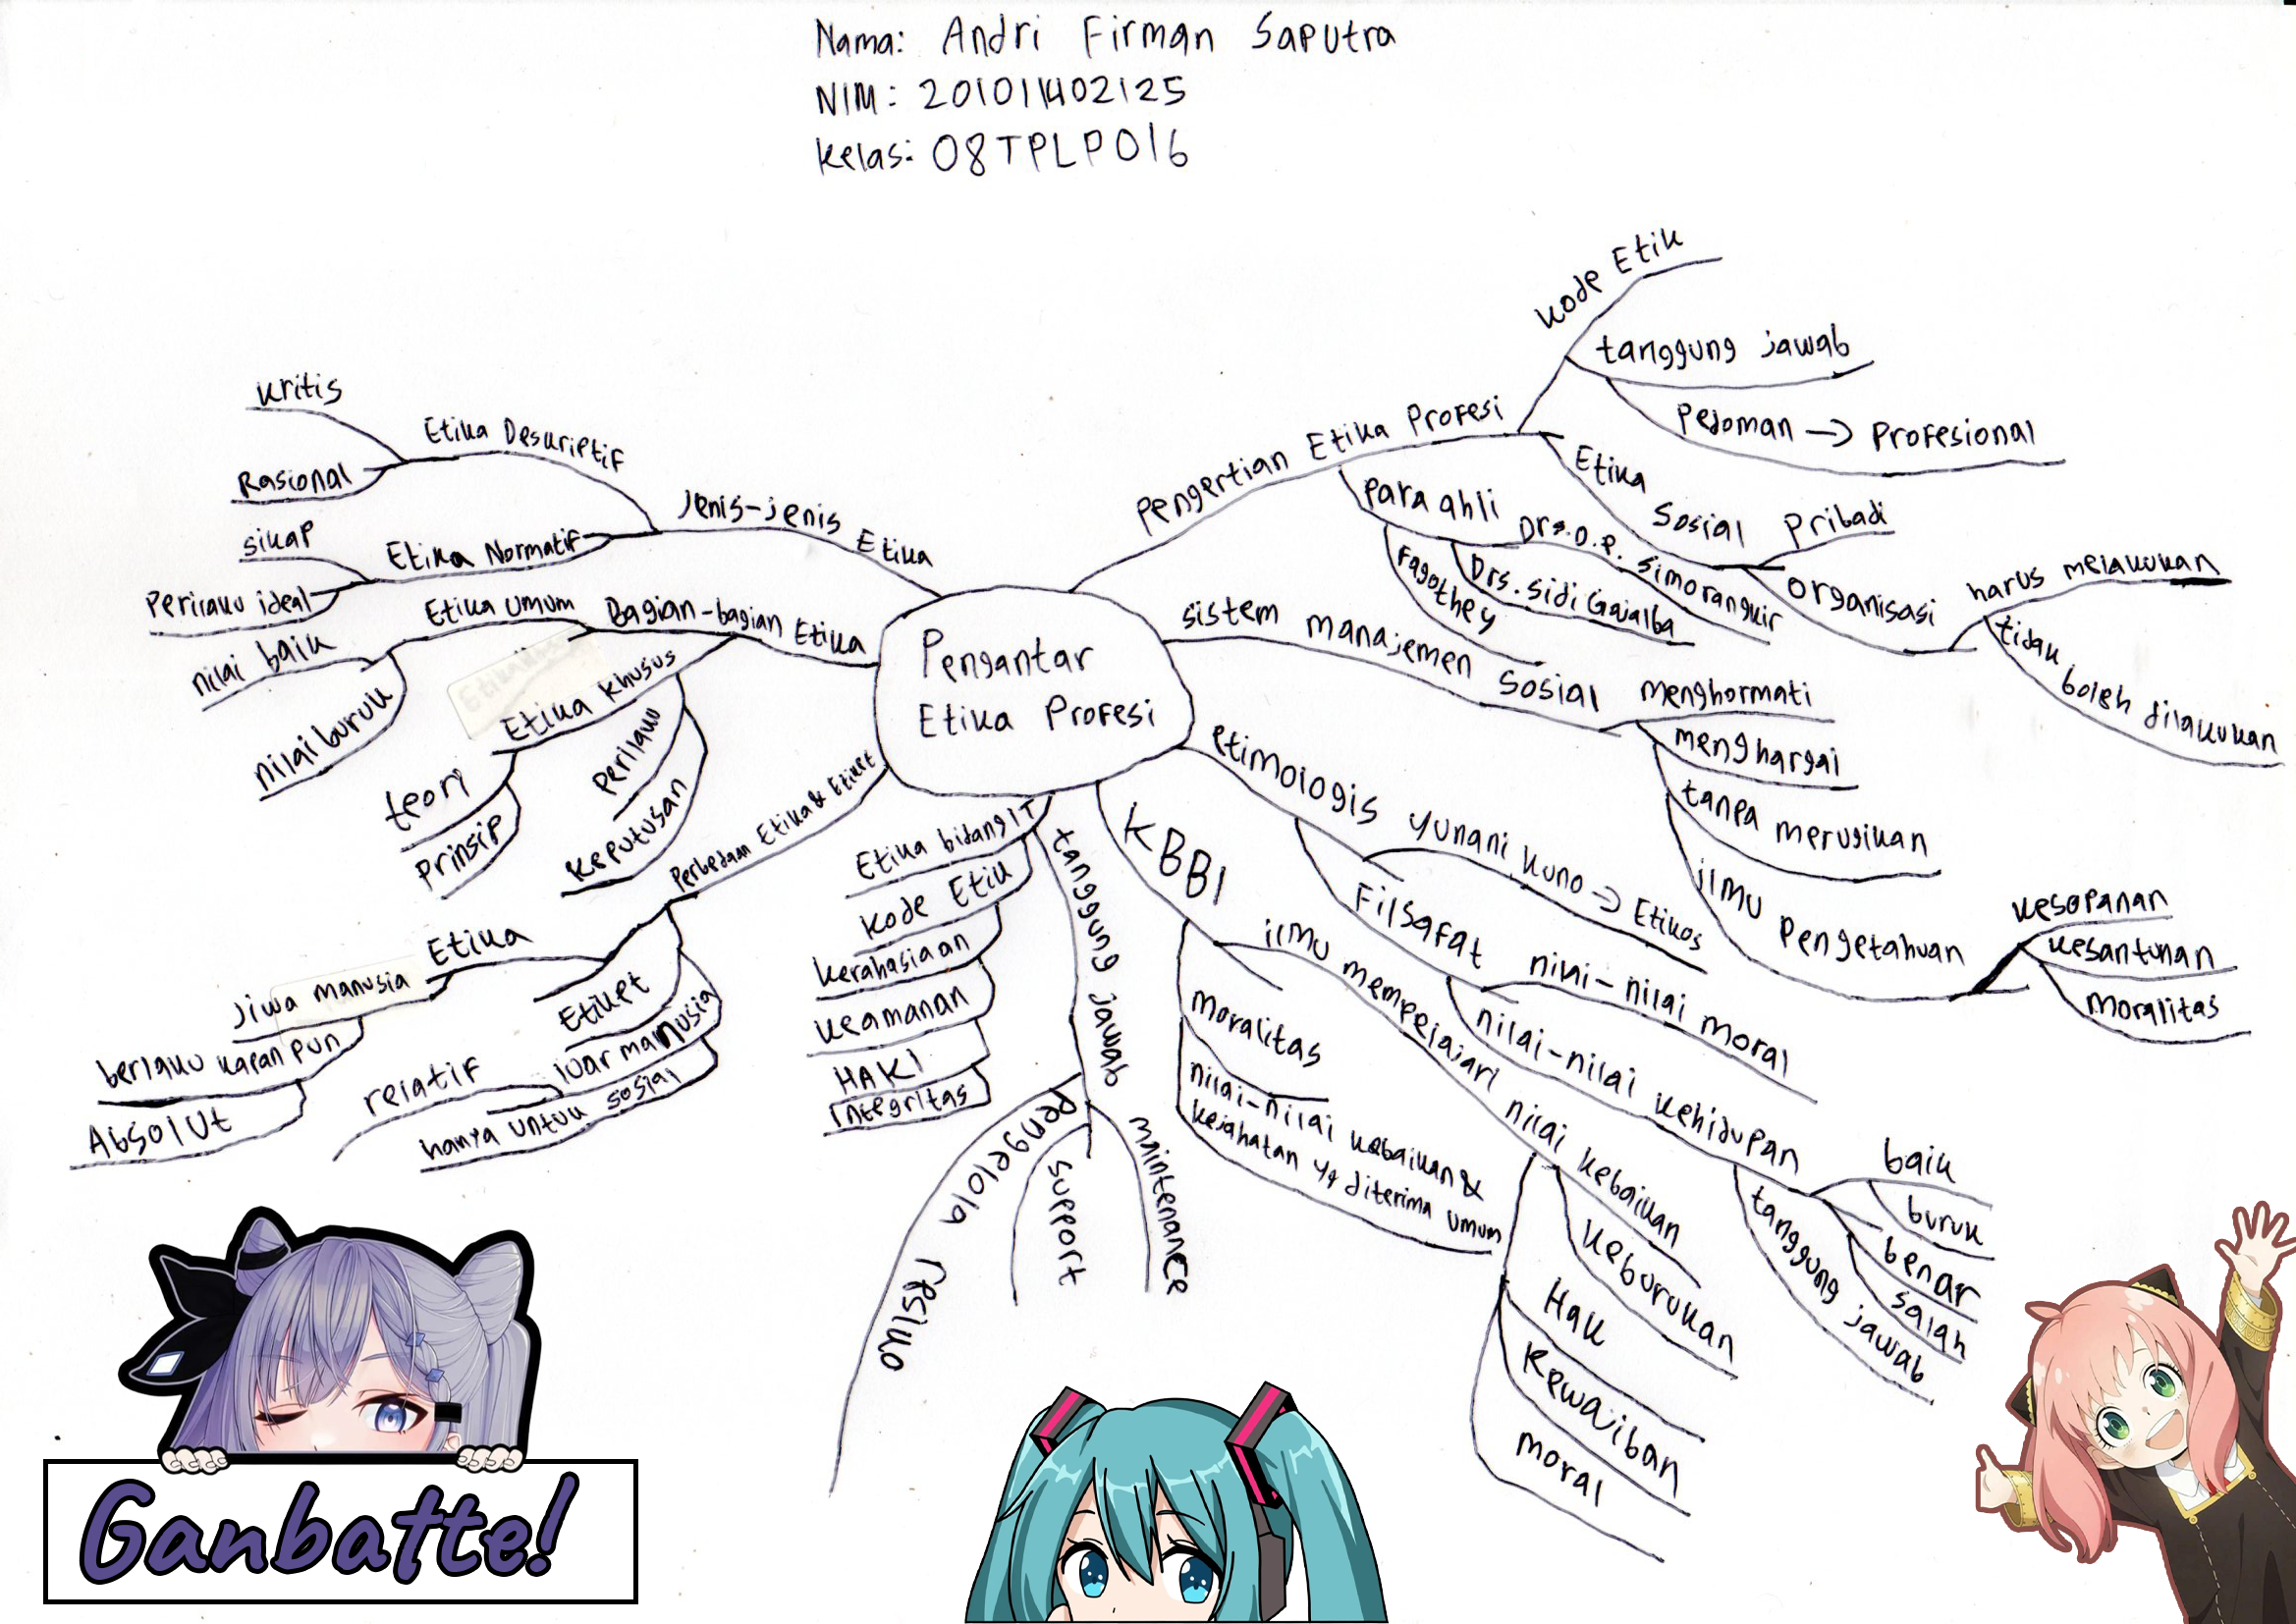 Nama: Andri Firman Saputra
NIM: 201011402125
Kelas: 08TPLP016
Pengantar
Etika Profesi
Pengertian Etika Profesi
Kode Etik
tanggung jawab
Pedoman -> Profesional
Etika Sosial
Pribadi
Organisasi
harus melakukan
tidak boleh dilakukan
Para ahli
Drs. O.P. Simorangkir
Drs. Sidi Gajalba
Fagothey
sistem manajemen sosial
menghormati
menghargai
tanpa merugikan
ilmu Pengetahuan
Kesopanan
Kesantunan
Moralitas
etimologis
Yunani Kuno -> Etikos
Filsafat
nilai-nilai moral
nilai-nilai kehidupan
baik
buruk
benar
salah
tanggung jawab
KBBI
ilmu mempelajari nilai kebaikan
Keburukan
Hak
Kewajiban
moral
Moralitas
nilai-nilai kebaikan &
kejahatan yg diterima umum
Etika bidang IT
tanggung jawab
maintenance
support
Pengelola resiko
Kode Etik
Kerahasiaan
Keamanan
HAKI
Integritas
Perbedaan Etika & Etiket
Etika
Jiwa manusia
berlaku kapan pun
Absolut
Etiket
luar manusia
relatif
hanya untuk sosial
Bagian-bagian Etika
Etika Umum
nilai baik
nilai buruk
Etika Khusus
teori
Prinsip
Perilaku
Keputusan
Jenis-jenis Etika
Etika Deskriptif
Kritis
Rasional
Etika Normatif
sikap
Perilaku ideal
Ganbatte!